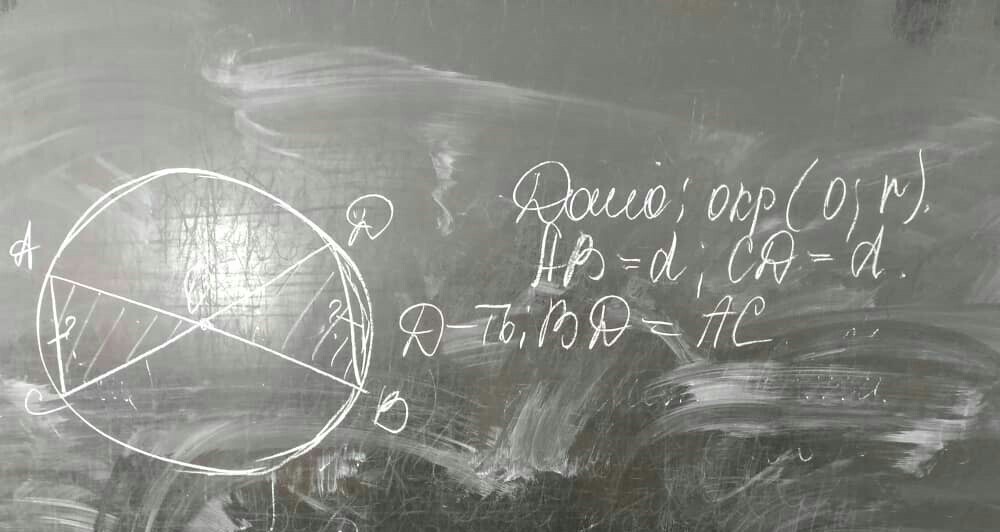 Дано: окр(О; r).
АВ = d; CD = d.
Д-ть: BD = AC
A
D
O
?
?
C
B